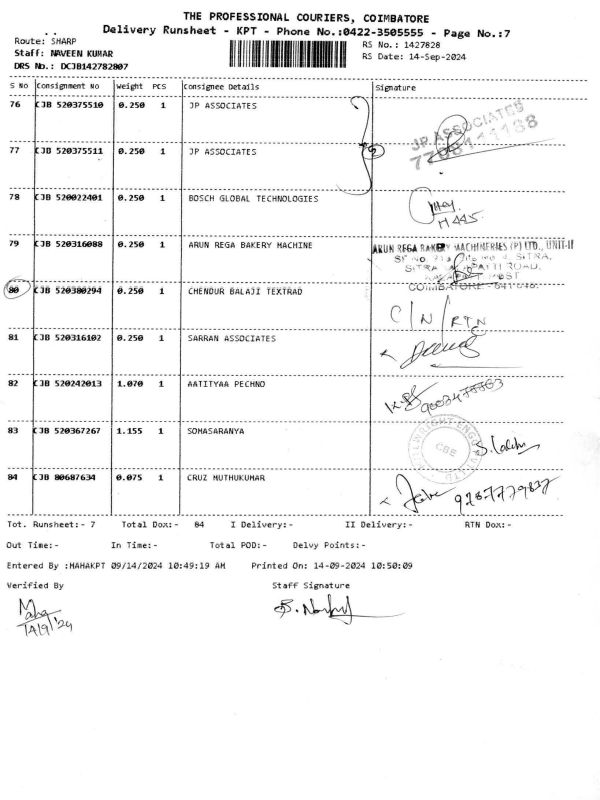 THE PROFESSIONAL COURIERS, COIMBATORE
Delivery Runsheet - KPT - Phone No.:0422-3505555 - Page No.:7
Route: SHARP RS No.: 1427828
Staff: NAVEEN KUMAR RS Date: 14-Sep-2024
DRS No.: DCJB142782807
S No Consignment No Weight PCS Consignee Details Signature
76 CJB 520375510 0.250 1 JP ASSOCIATES
JP ASSOCIATES
77 CJB 520375511 0.250 1 JP ASSOCIATES
78 CJB 520022401 0.250 1 BOSCH GLOBAL TECHNOLOGIES
H445
79 CJB 520316088 0.250 1 ARUN REGA BAKERY MACHINE ARUN REGA BAKERY MACHINERIES (P) LTD., UNIT-II
SITRA,
ROAD,
POST
COIMBATORE - 641048.
80 CJB 520380294 0.250 1 CHENDUR BALAJI TEXTRAD
C/N/RTN
81 CJB 520316102 0.250 1 SARRAN ASSOCIATES
82 CJB 520242013 1.070 1 AATITYAA PECHNO
83 CJB 520367267 1.155 1 SOMASARANYA
CBE
84 CJB 80687634 0.075 1 CRUZ MUTHUKUMAR
9787779837
Tot. Runsheet:- 7 Total Dox:- 84 I Delivery:- II Delivery:- RTN Dox:-
Out Time:- In Time:- Total POD:- Delvy Points:-
Entered By :MAHAKPT 09/14/2024 10:49:19 AM Printed On: 14-09-2024 10:50:09
Verified By Staff Signature
Maha
14/9/24